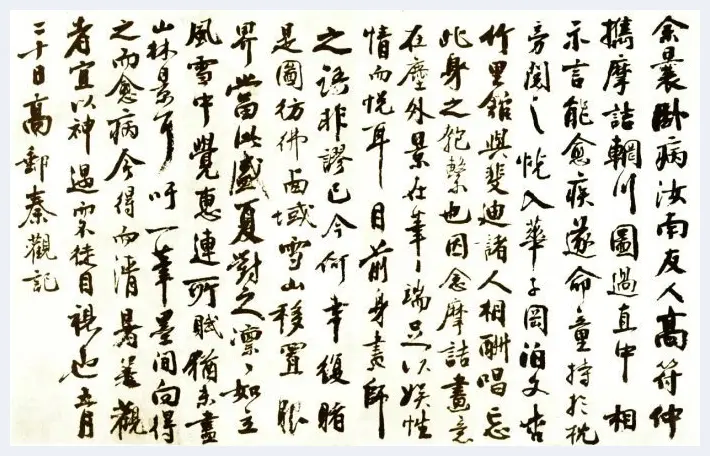 余曩卧病汝南友人高符仲
攜摩詰輞川圖過直中相
示言能愈疾遂命童持於枕
旁閱之恍入華子岡泊文杏
竹里館與斐迪諸人相酬唱忘
此身之匏繫也因念摩詰畫意
在塵外景在筆端足以娛性
情而悅耳目前身畫師
之語非謬已今何幸復睹
是圖彷彿西域雪山移置眼
界當此盛夏對之凛凛如立
風雪中覺惠連所賦猶未盡
山林景耳吁一筆墨間向得
之而愈病今得而清暑善觀
者宜以神遇而不徒目視也五月
二十日高郵秦觀記